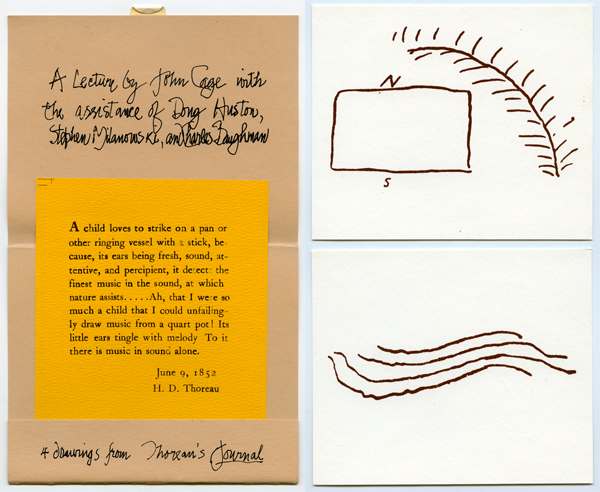 A Lecture by John Cage with
the assistance of Doug Huston,
Stephen Milanowski, and Charles Baughman
A child loves to strike on a pan or
other ringing vessel with a stick, be-
cause, its ears being fresh, sound, at-
tentive, and percipient, it detect the
finest music in the sound, at which
nature assists.....Ah, that I were so
much a child that I could unfailing-
ly draw music from a quart pot! Its
little ears tingle with melody To it
there is music in sound alone.
June 9, 1852
H. D. Thoreau
4 drawings from Thoreau's Journal
N
S